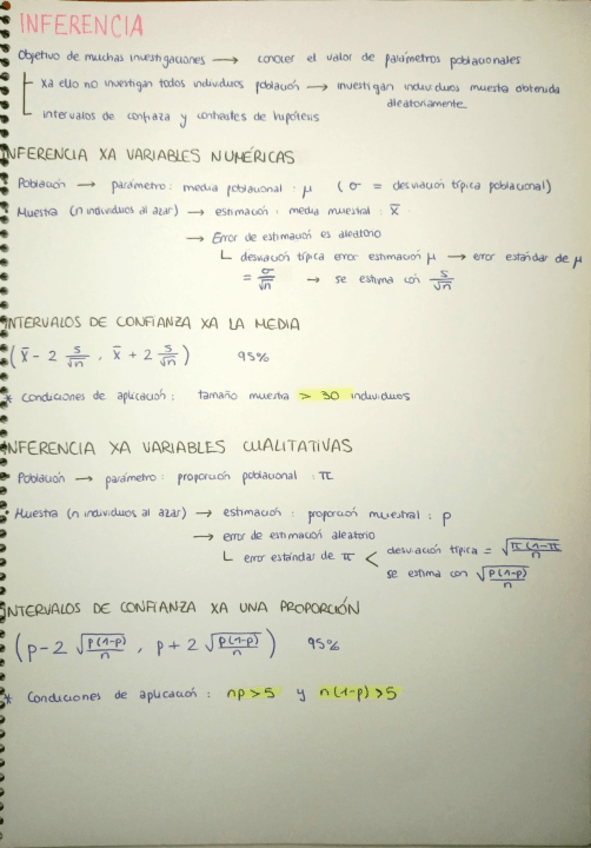 INFERENCIA
Objetivo de muchas investigaciones → conocer el valor de parámetros poblacionales
xa ello no investigan todos individuos población → investigan individuos muestra obtenida
aleatoriamente
intervalos de confiaza y contrastes de hipótesis
INFERENCIA XA VARIABLES NUMÉRICAS
Población → parámetro : media poblacional : μ ( σ = desviación típica poblacional)
Muestra (n individuos al azar) → estimación : media muestral : x̄
→ Error de estimación es aleatorio
desviación típica error estimación μ → error estándar de μ
= σ/√n → se estima con s/√n
INTERVALOS DE CONFIANZA XA LA MEDIA
(x̄ - 2 s/√n , x̄ + 2 s/√n) 95%
* Condiciones de aplicación : tamaño muestra > 30 individuos
INFERENCIA XA VARIABLES CUALITATIVAS
Población → parámetro : proporción poblacional : π
Muestra (n individuos al azar) → estimación : proporción muestral : p
→ error de estimación aleatorio
error estándar de π < desviación típica = √(π(1-π)/n)
se estima con √(p(1-p)/n)
INTERVALOS DE CONFIANZA XA UNA PROPORCIÓN
(p - 2 √(p(1-p)/n) , p + 2 √(p(1-p)/n)) 95%
* Condiciones de aplicación : np > 5 y n(1-p) > 5